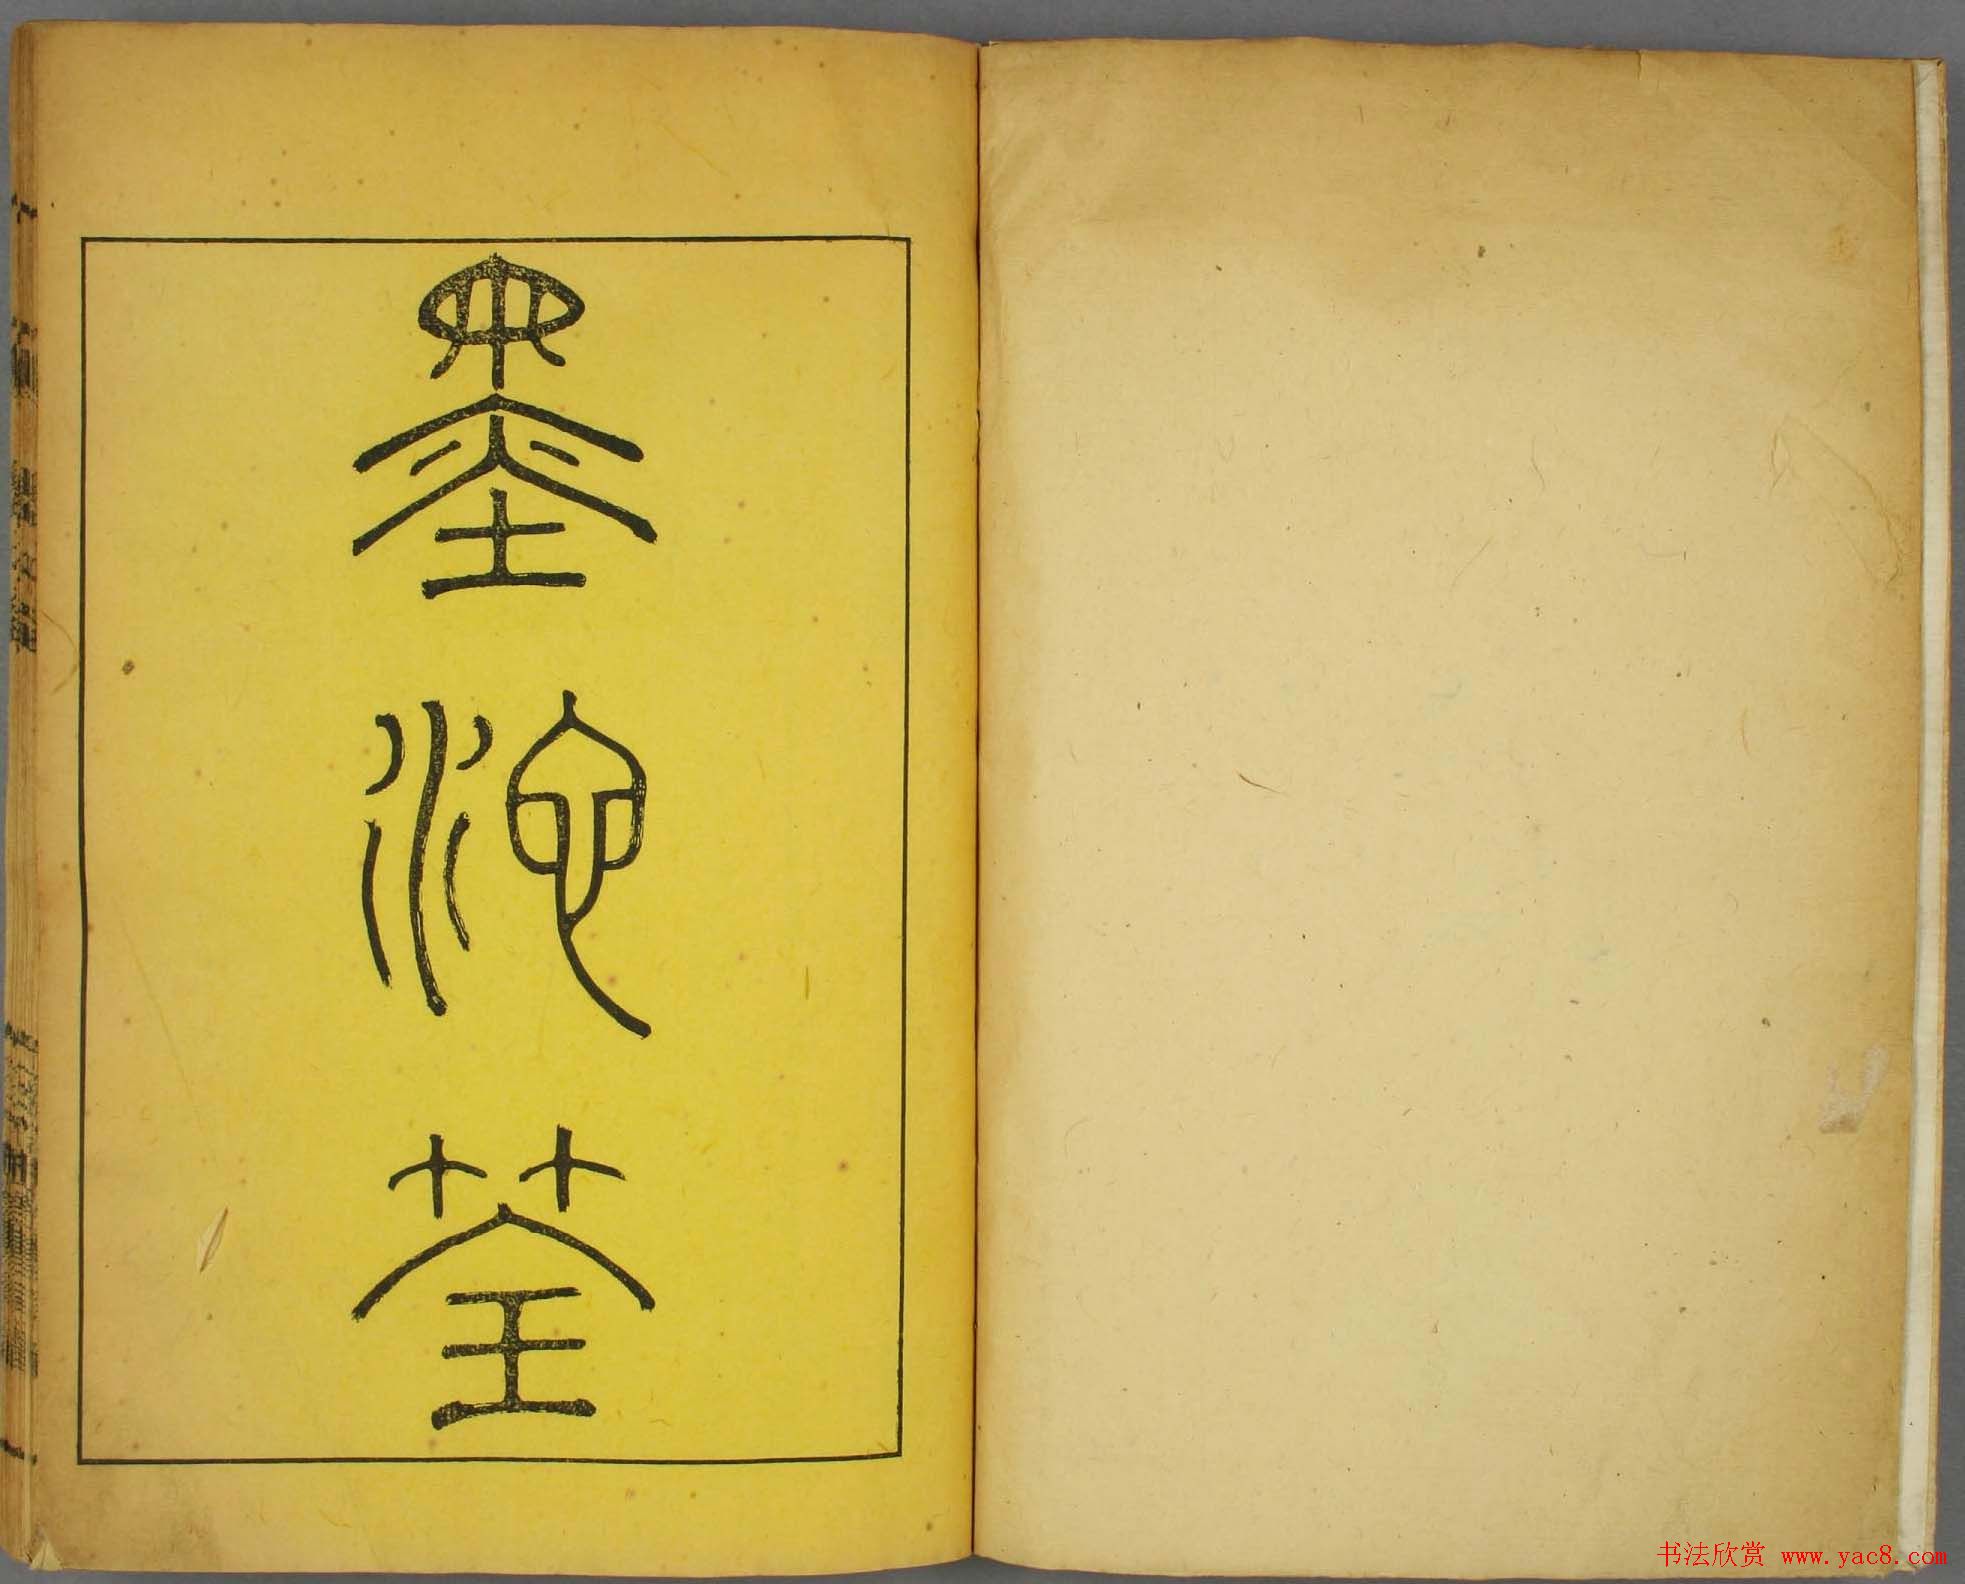 墨池荃
书法欣赏 www.yac8.com